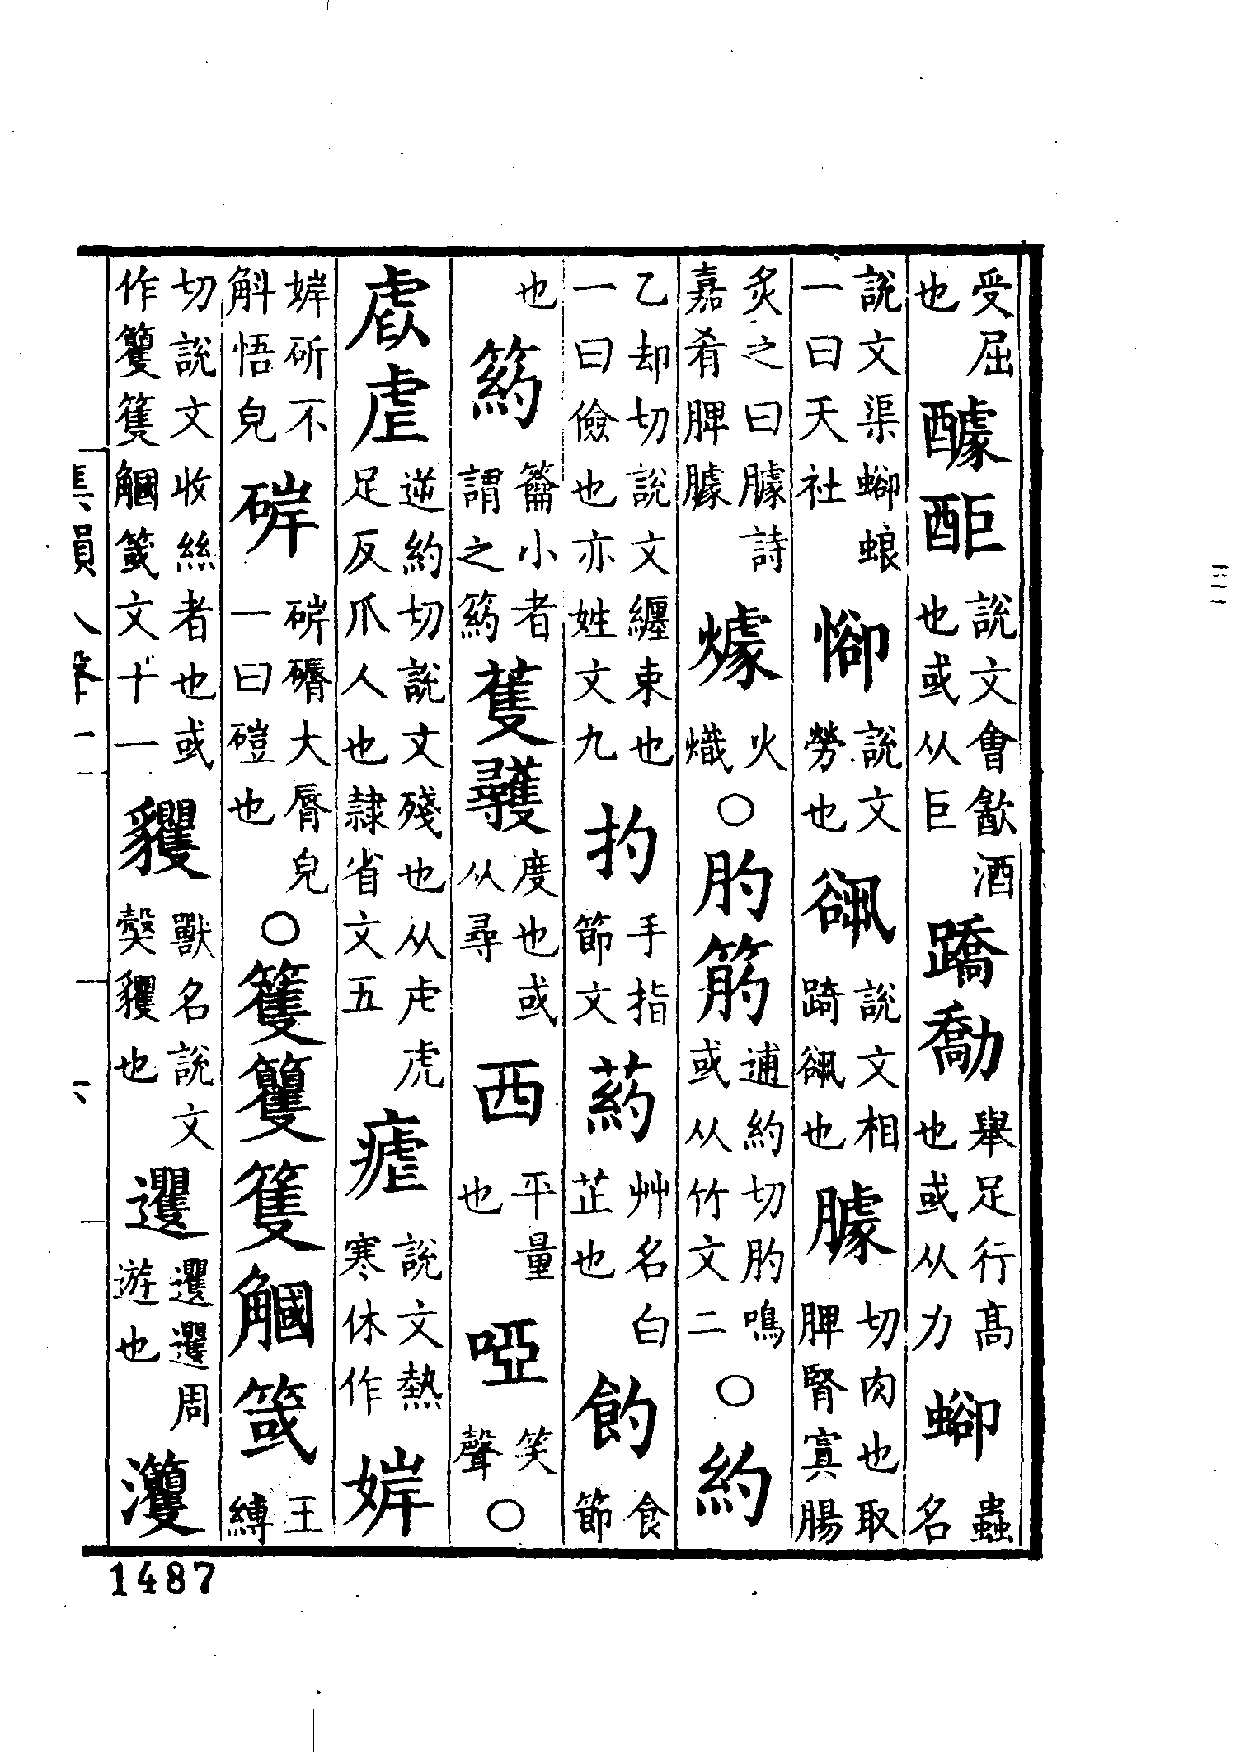 受屈也醵䣰說文會歠酒也或从巨蹻勪舉足行高也或从力蟲名
說文渠蜋一曰天社說文勞也谻說文相踦谻也臄切肉也取脾腎寘腸
炙之曰臄詩嘉肴脾臄火熾○肑逋約切肑鳴或从竹文二○約
乙却切說文纏束也一曰儉也亦姓文九扚手指節文葯艸名白芷也食節
也箹籥小者謂之箹蒦度也或从尋西平量也啞笑聲○
虐逆約切說文殘也从虍虎足反爪人也隸省文五瘧說文熱寒休作婩
婩斫不解悟皃硸硸磭大脣皃一曰磑也○籆籰王縛
切說文收絲者也或作籰文十一貜獸名說文㺉貜也邎周遊也
集韻入聲一
六
1487